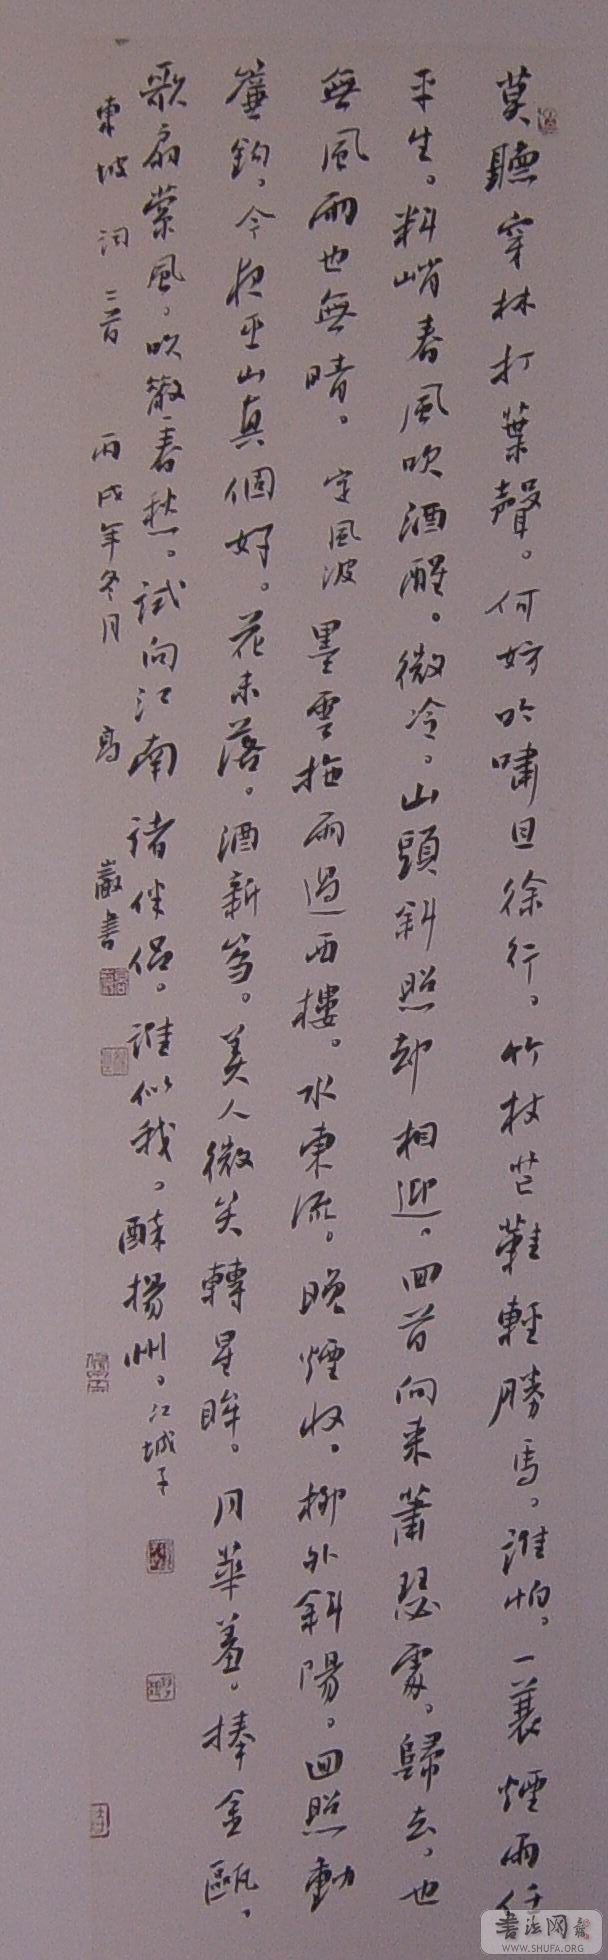 莫聽穿林打葉聲。何妨吟嘯且徐行。竹杖芒鞋輕勝馬。誰怕。一蓑煙雨任
平生。料峭春風吹酒醒。微冷。山頭斜照却相迎。回首向來蕭瑟處。歸去。也
無風雨也無晴。 定風波 墨雲拖雨過西樓。水東流。晚煙收。柳外斜陽。回照動
簾鉤。今夜巫山真個好。花未落。酒新篘。美人微笑轉星眸。月華羞。捧金甌。
歌扇縈風。吹散春愁。試向江南諸伴侶。誰似我。醉揚州。江城子
東坡詞二首 丙戌年冬月 高 巖書
書法网
WWW.SHUFA.ORG